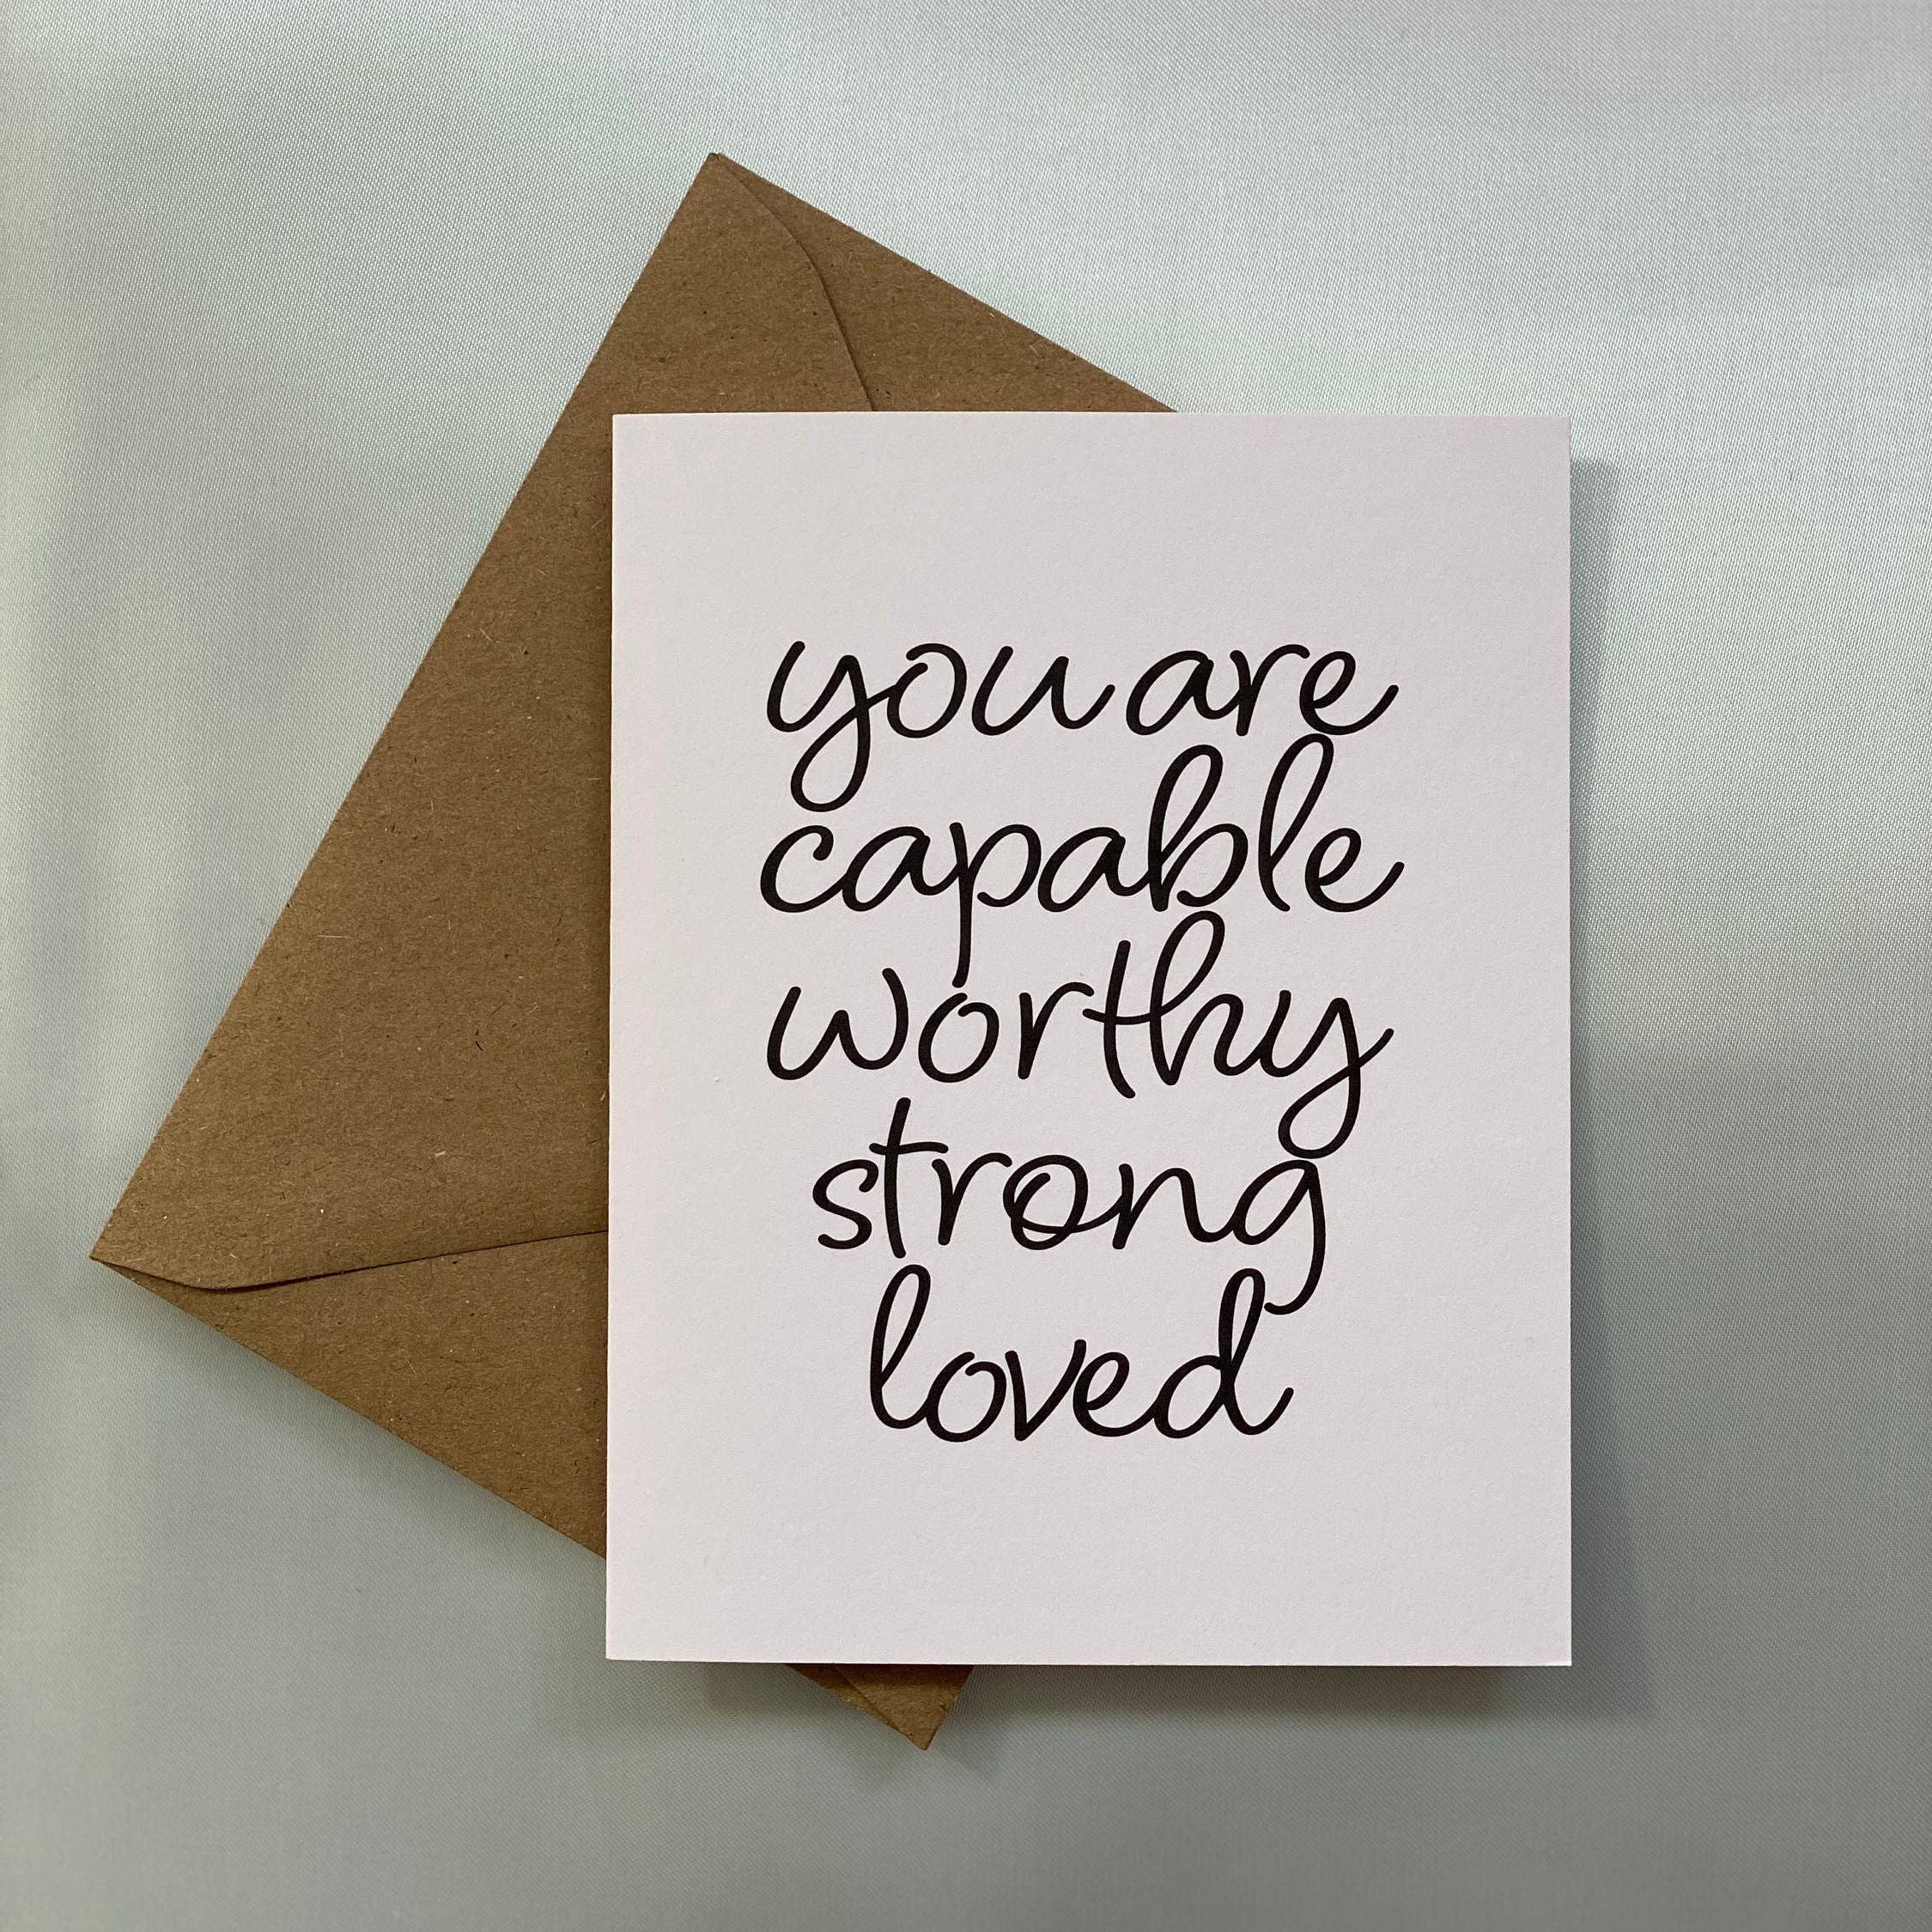 you are
capable
worthy
strong
loved